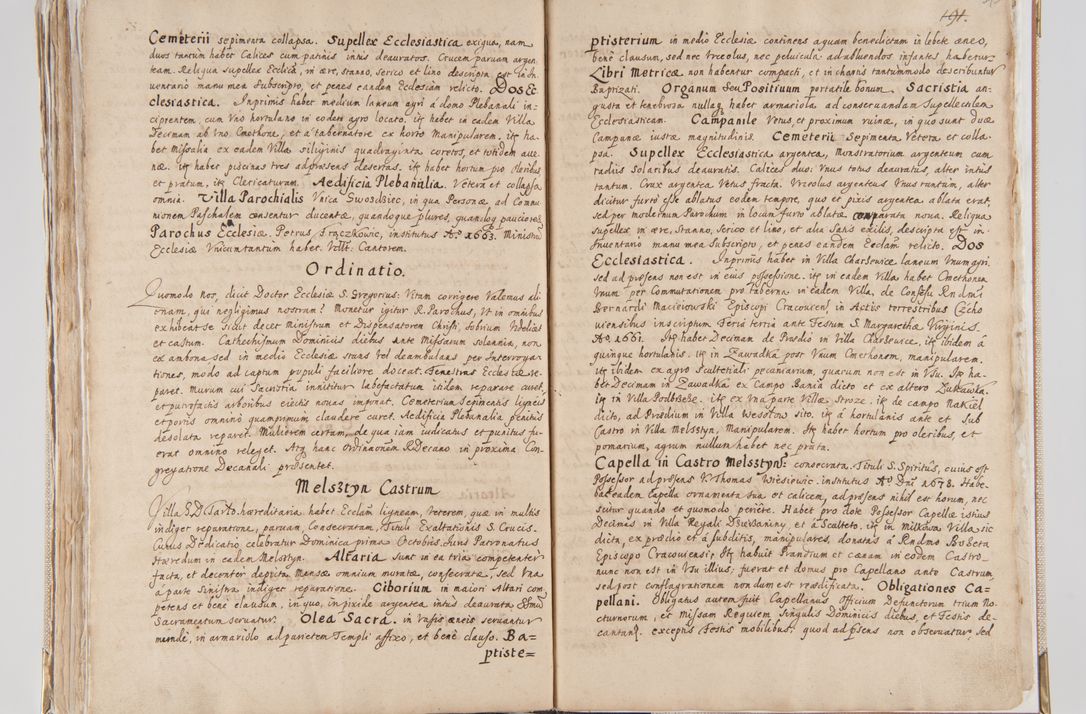 Cemeterii sepimenta collapsa. Supellex Ecclesiastica exigua, nam
duos tantum habet Calices cum patinis intus deauratos. Crucem parvam argen-
team. Reliqua supellex Ecclica, in ære, stanno, serico et lino descripta est in In-
uentario manu mea subscripto, et penes eandem Ecclesiam relicto. Dos Ec-
clesiastica. Inprimis habet medium laneum agri á domo Plebanali in-
cipientem, cum Vno hortulano in eodem agro locato. itq habet in eadem Villa
Decimam ab Vno Cmethone, et á tabernatore ex horto Manipularem. itq ha-
bet Missalia ex eadem Villa siliginis quadraginta coretos, et totidem aue-
næ. itq habet piscinas tres adpræsens desertas. itq habet hortum pro oleribus
et pratum, itq Clericaturam. Aedificia Plebanalia. Vetera et collapsa
omnia. Villa Parochialis Vnica Gwosdziec, in qua Personæ ad Commu-
nionem Paschalem censentur ducentæ, quandoque plures, quandoq pauciores
Parochus Ecclesiæ. Petrus Srączkowic, institutus Aº 1663. Ministru
Ecclesiæ Vnicum tantum habet Vdlt: Cantorem.
Ordinatio.
Quomodo nos, dicit Doctor Ecclesiæ S. Gregorius: Vitam corrigere Valemus ali-
enam, qui negligimus nostram? Monetur igitur R. Parochus, Vt in omnibus
exhibeat se sicut decet ministrum et Dispensatorem Christi, sobrium Vtdelicet
et castum. Cathechismum Dominicis diebus ante Missarum solennia, non
ex ambona sed in medio Ecclesiæ stans vel deambulans per Interroga-
tiones, modo ad captum populi faciliore doceat. Fenestras Ecclesiæ re-
paret. Murum cui Sacristia innititur labefactatum itidem reparare curet,
et putrefactis arboribus eiectis nouas imponat. Cemeterium sepimentis ligneis
et portis omnino quamprimum claudere curet. Aedificia Plebanalia penitus
desolata reparet. Mulierem certam, de qua iam iudicatus et punitus fu-
erat omnino releget. Atq hanc Ordinaonem R. Decano in proxima Con-
gregatione Decanali præsentet.
Melsztyn Castrum
Villa G.D. Tarło hæreditaria habet Ecclam ligneam, Veterem, quæ in multis
indiget reparatione, paruam, Consecratam, Tituli Exaltationis S. Crucis.
Cuius Dedicatio celebratur Dominica prima Octobris. Juris Patronatus
Hæredum in eadem Melsztyn. Altaria sunt in ea tria competenter
facta, et decenter depicta Mensæ omnium muratæ, consecratæ, sed Vna
á parte sinistra indiget reparatione. Ciborium in maiori Altari com-
petens et bene clausum, in quo, in pixide argentea intus deaurata SSmu
Sacramentum seruatur. Olea Sacra. in Vasis æneis seruantur
mundè, in armariolo ad parietem Templi affixo, et benè clauso. Ba=
ptiste=
191.
ptisterium in medio Ecclesiæ continens aquam benedictam in lebete æneo,
benè clausum, sed nec Vrceolus, nec peluicula ad abluendos infantes habetur.
Libri Metricæ non habentur compacti, et in chartis tantummodo describuntur
Baptizati. Organum seu Positiuum portatile bonum. Sacristia an-
gusta et tenebrosa nullaq habet armariola ad conseruandam supellectilem
Ecclesiasticam. Campanile Vetus, et proximum ruinæ, in quo sunt duæ
Campanæ iustæ magnitudinis. Cemeterii Sepimenta Vetera et colla-
psa. Supellex Ecclesiastica argentea, Monstratorium argenteum cum
radiis solaribus deauratis. Calices duo: Vnus totus deauratus, alter intus
tantum. Crux argentea Vetus fracta. Vrceolus argenteus Vnus tantum, alter
dicitur furto esse ablatus eodem tempore, quo et pixis argentea ablata erat,
sed per modernum Parochum in locum furto ablatæ comparata noua. Reliqua
supellex in ære, stanno, serico et lino, et alia satis exilis, descripta est in
Inuentario manu mea subscripto, et penes eandem Ecclam relicto. Dos
Ecclesiastica. Inprimis habet in Villa Charsewice laneum Vnum agri.
sed ad præsens non est in eius possessione. itq in eadem Villa habet Cmethonem
Vnum per Commutationem pro taberna in eadem Villa. de Consesu Rndmi
Bernardi Macieiowski Episcopi Cracouiens in Actis terrestribus Czcho
uiensibus inscriptum Feria tertia ante Festum S. Margarethæ Virginis.
Aº. 1661. Itq habet Decimam de Prædio in Villa Charsewice, itq ibidem á
quinque hortulanis. itq in Zawadka post Vnum Cmethonem, manipularem.
itq ibidem ex agro sculteciali pecuniariam, quarum non est in Vsu. itq ha-
bet Decimam in Zawadka ex Campo Bania dicto et ex altero Zukawka.
itq in Villa Podlieże. itq ex Vna parte Villæ Stroze. itq de campo Nakiel
dicto, ad Prædium in Villa Wesołow sito. itq á hortulanis ante et sub
Castro in Villa Melsztyn, Manipularem. Itq habet hortum pro oleribus, et
pomarium, agrum nullum habet nec prata.
Capella in Castro Melsztyn: consecrata. Tituli S. Spiritûs, cuius est
Possessor adpræsens V. Thomas Wresiewic. institutus Aº Dni 1678. Habe-
bat eadem Capella ornamenta sua et calicem, adpræsens nihil est horum, nec
scitur quando et quomodo periere. Habet pro dote Possessor Capellæ istius
Decimas in Villa Regali Dzierżaniny, et á sculteto, itq in milkowa Villa sic
dicta, ex prædio et á subditis, manipulares, donatas á Rndmo Bobeta
Episcopo Cracouiensi. Itq habuit Prandium et cænam in eodem Castro
nunc non est in Vsu illius: fuerat et domus pro Capellano ante Castrum,
sed post conflagrationem nondum est reædificata. Obligationes Ca=
pellani. Obligatus autem fuit Capellanus officium Defunctorum trium No
cturnorum, et missam Requiem singulis Dominicis diebus, et Festis de-
cantar, exceptis Festis mobilibus: quod ad psens non obseruatur, sed